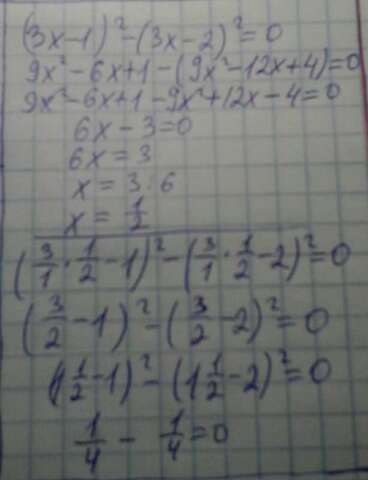 (3x-1)²-(3x-2)²=0
9x²-6x+1-(9x²-12x+4)=0
9x²-6x+1-9x²+12x-4=0
6x-3=0
6x=3
x=3:6
x=1/2
(3/1·1/2-1)²-(3/1·1/2-2)²=0
(3/2-1)²-(3/2-2)²=0
(1 1/2-1)²-(1 1/2-2)²=0
1/4-1/4=0